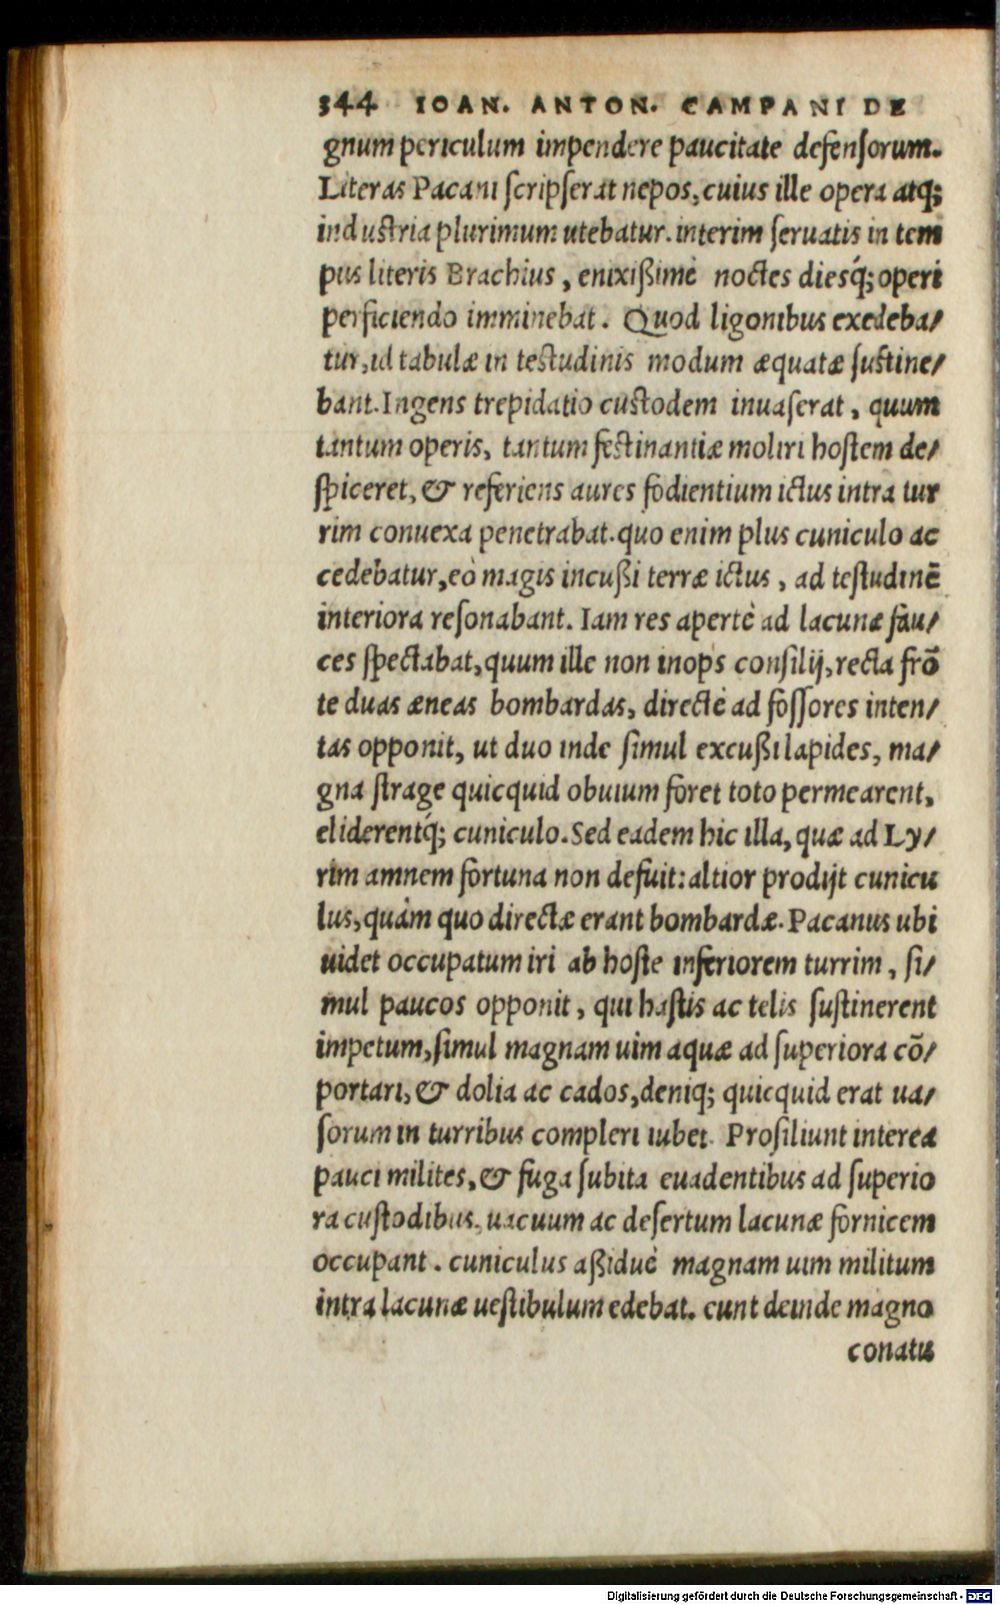 344 IOAN. ANTON. CAMPANI DE
gnum periculum impendere paucitate defenſorum.
Literas Pacani ſcripſerat nepos, cuius ille opera atq;
induſtria plurimum utebatur. interim ſeruatis in tem
pus literis Brachius, enixißimè noctes diesq́; operi
perficiendo imminebat. Quod ligonibus exedeba/
tur, id tabulæ in teſtudinis modum æquatæ ſuſtine/
bant. Ingens trepidatio cuſtodem inuaſerat, quum
tantum operis, tantum feſtinantiæ moliri hoſtem de/
ſpiceret, & referiens aures fodientium ictus intra tur
rim conuexa penetrabat. quo enim plus cuniculo ac
cedebatur, eò magis incußi terræ ictus, ad teſtudinẽ
interiora reſonabant. Iam res apertè ad lacunæ fau/
ces ſpectabat, quum ille non inops conſilij, recta frõ
te duas æneas bombardas, directè ad foſſores inten/
tas opponit, ut duo inde ſimul excußi lapides, ma/
gna ſtrage quicquid obuium foret toto permearent,
eliderentq́; cuniculo. Sed eadem hic illa, quæ ad Ly/
rim amnem fortuna non defuit: altior prodijt cunicu
lus, quàm quo directæ erant bombardæ. Pacanus ubi
uidet occupatum iri ab hoſte inferiorem turrim, ſi/
mul paucos opponit, qui haſtis ac telis ſuſtinerent
impetum, ſimul magnam uim aquæ ad ſuperiora cõ/
portari, & dolia ac cados, deniq; quicquid erat ua/
ſorum in turribus compleri iubet. Proſiliunt interea
pauci milites, & fuga ſubita euadentibus ad ſuperio
ra cuſtodibus, uacuum ac deſertum lacunæ fornicem
occupant. cuniculus aßiduè magnam uim militum
intra lacunæ ueſtibulum edebat. eunt deinde magno
conatu
Digitalisierung gefördert durch die Deutsche Forschungsgemeinschaft - DFG